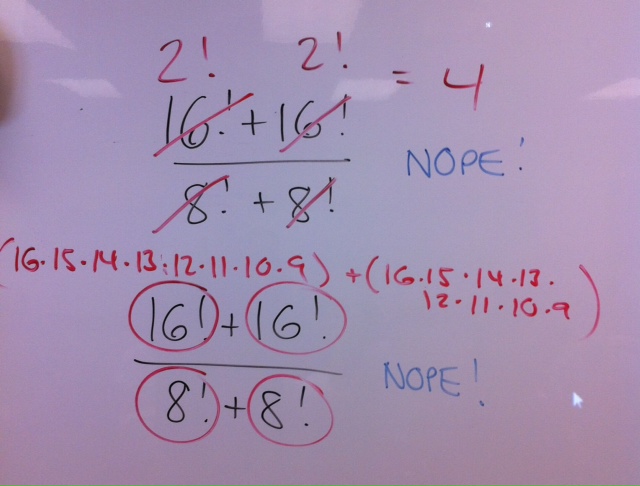 2! 2!
16! + 16! = 4
8! + 8!
NOPE!
(16.15.14.13.12.11.10.9) + (16.15.14.13.
12.11.10.9)
16! + 16!
8! + 8!
NOPE!